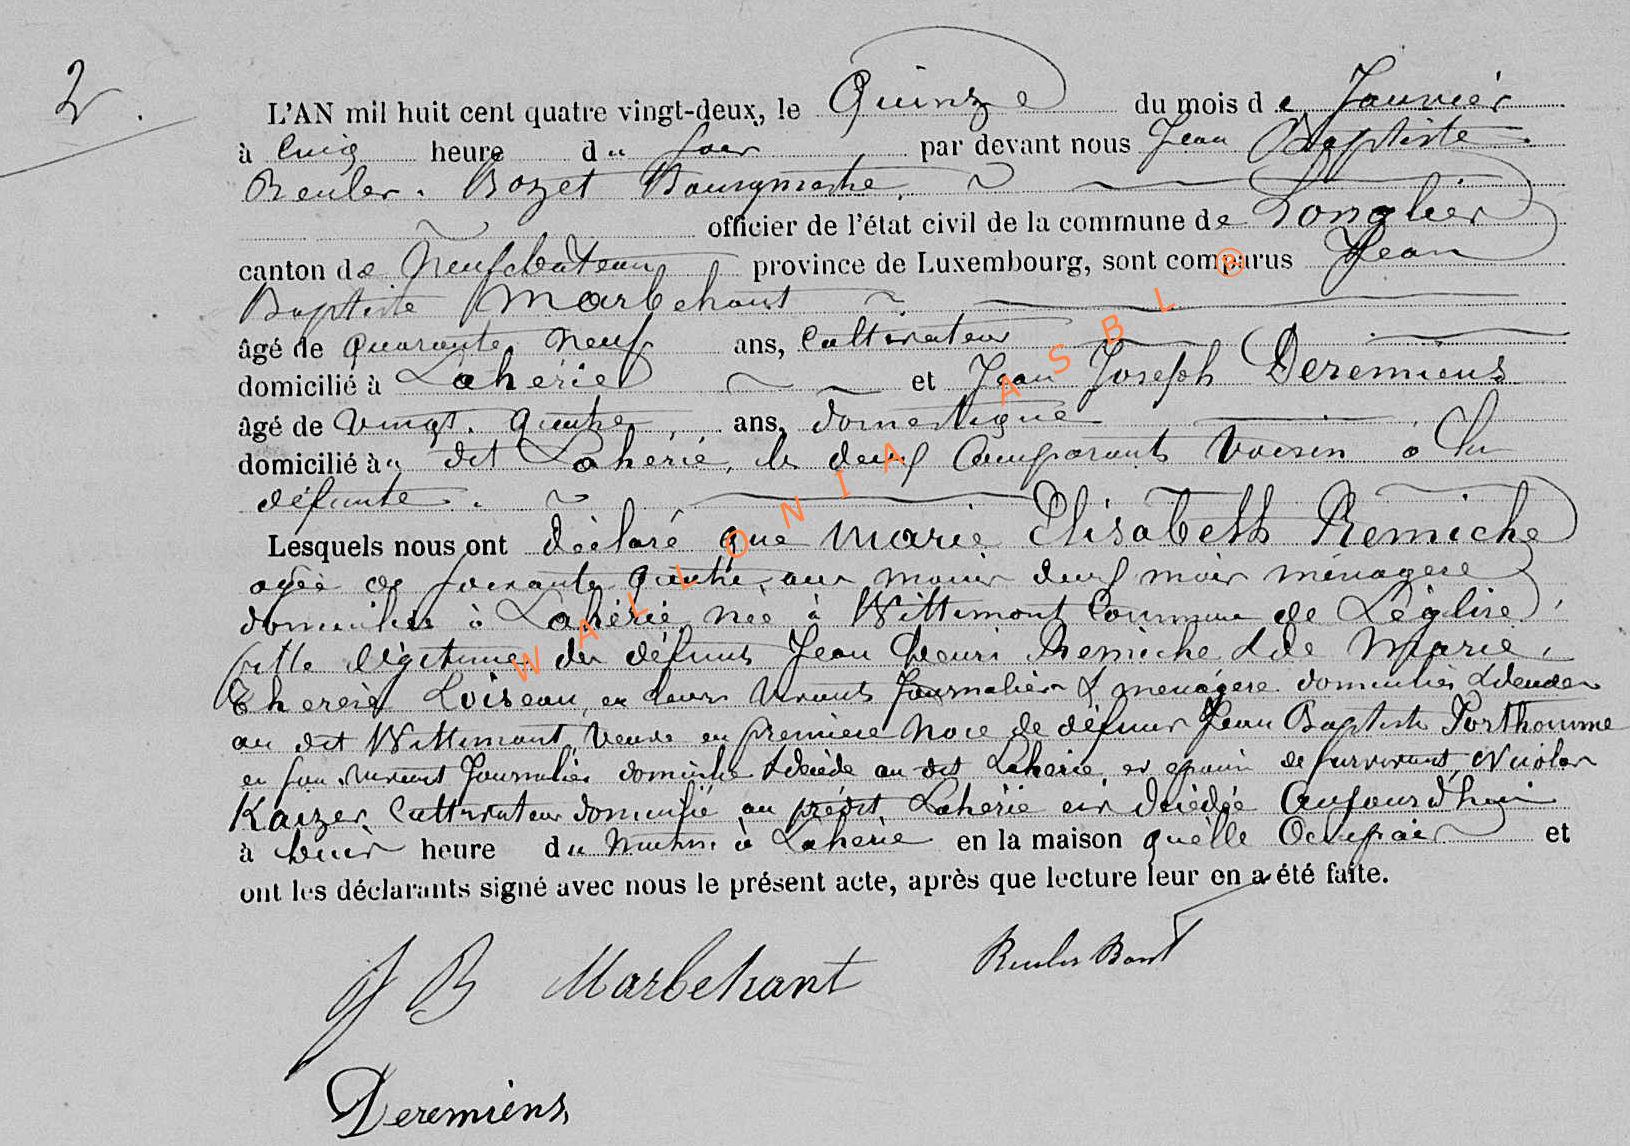 2.
L'AN mil huit cent quatre vingt-deux, le Quinze du mois de Janvier
à Cinq heure du soir par devant nous Jean Baptiste
Reuler. Bozet Bourgmestre
officier de l'état civil de la commune de Longlier
canton de Neufchateau province de Luxembourg, sont comparus Jean
Baptiste Marbehant
âgé de quarante neuf ans, Cultivateur
domicilié à Lahérie et Jean Joseph Deremiens
âgé de vingt. quatre ans, domestique
domicilié à dit Lahérié, les deux Comparants Voisin à la
défunte.
Lesquels nous ont déclaré que Marie Elisabeth Remiche
agée de soixante quatre ans moins deux mois ménagère
domiciliée à Lahérié née à Wittimont Commune de Léglise,
fille légitime des défunts Jean henri Remiche & de Marie,
Therèse Loiseau, en leurs vivants Journalier & menagère domiciliés & décédés
au dit Wittimont, Veuve en première noce de défunt Jean Baptiste Porthomme
en son vivant Journalier domicilié & décédé au dit Laherie et épouse de survivant Nicolas
Kaizer Cultivateur domicilié au prédit Lahérie est décédée Aujourd'hui
à heure du Matin à Laherie en la maison quèlle Occupait et
ont les déclarants signé avec nous le présent acte, après que lecture leur en a été faite.
J B Marbehant
Reuler Bozet
Deremiens
WALLONIA ASBL ®